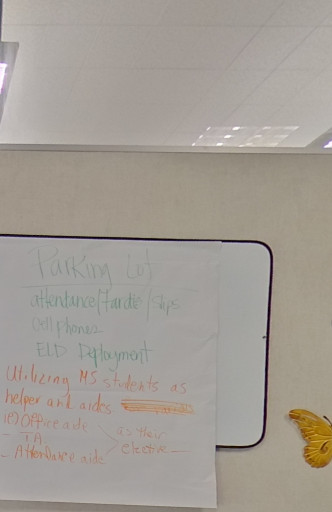 Parking Lot
attendance/Tardie/slips
Cell phones
ELD Deployment
Utilizing MS students as
helper and aides
ie) Office aide
- TA
- Attendance aide
as their
elective